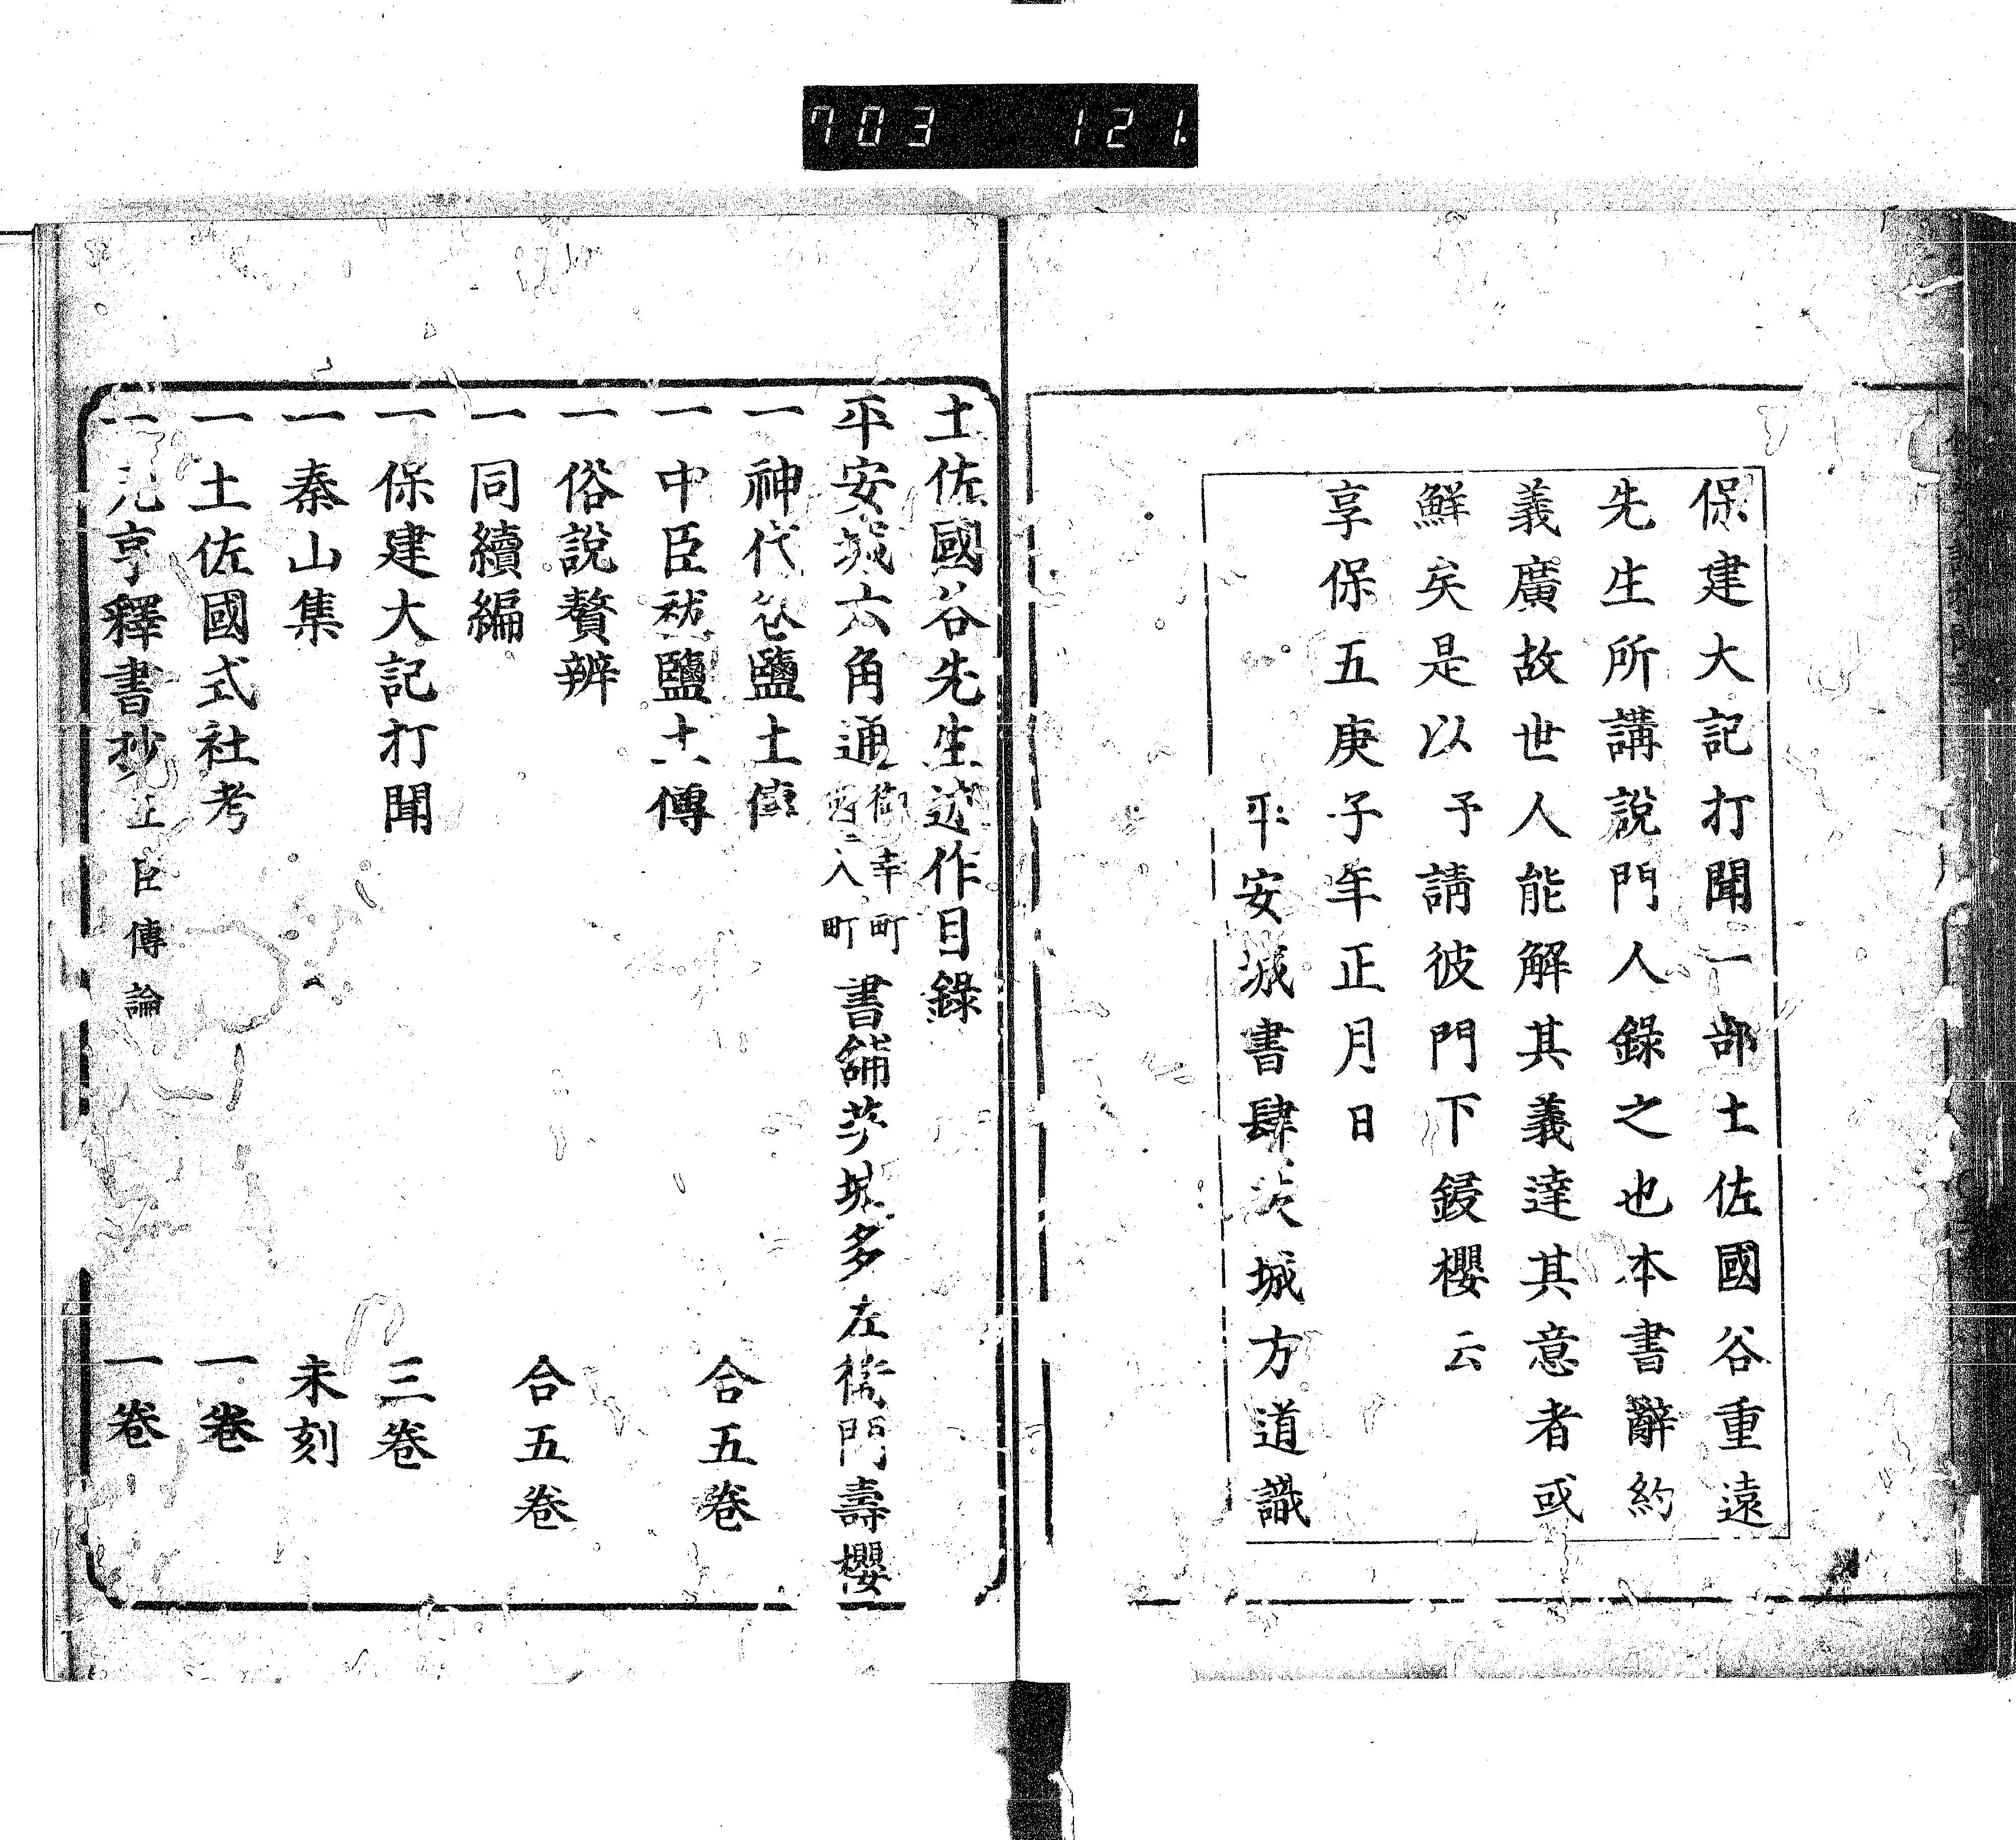 703 121
保建大記打聞一部土佐國谷重遠
先生所講說門人錄之也本書辭約
義廣故世人能解其義達其意者或
鮮矣是以予請彼門下鋟櫻云
享保五庚子年正月日
平安城書肆茨城方道識
土佐國谷先生述作目錄
平安城六角通御幸町西入町書舖茨城多左衛門壽櫻
一神代卷鹽土傳
一中臣祓鹽土傳 合五卷
一俗說贅辨
一同續編 合五卷
一保建大記打聞 三卷
一秦山集 未刻
一土佐國式社考 一卷
一元亨釋書抄王臣傳論 一卷